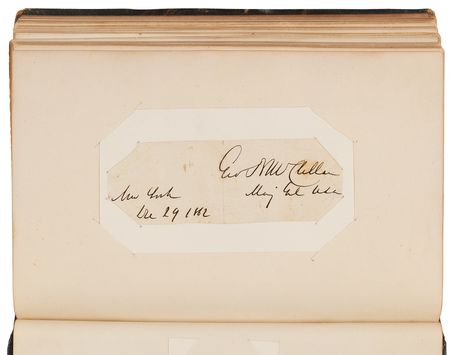 Geo B McClellan
Maj Gel USA
New York
Dec 29 1862